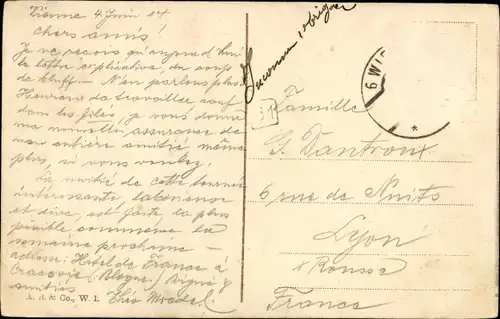 Vienne 4 Juin 14
Chers amis!
Je ne reçois qu'aujourd'hui
la lettre explicative, du coup
de bluff - N'en parlons plus.
Heureux de travailler, sauf
dans les files, je vous donne
ma nouvelle assurance de
mon entière amitié même
plus, si vous voulez.
La moitié de cette tournée
intéressante, laborieuse
et dive, est faite, la plus
pénible commence la
semaine prochaine -
adresse: Hotel de France à
Cracovie (Pologne)
amitiés Théo
A. J. & Co., W. I.
Inconnu
6 WIE
*
Famille
G. Dantroux
6 rue de Nuits
Lyon
x Rousse
France